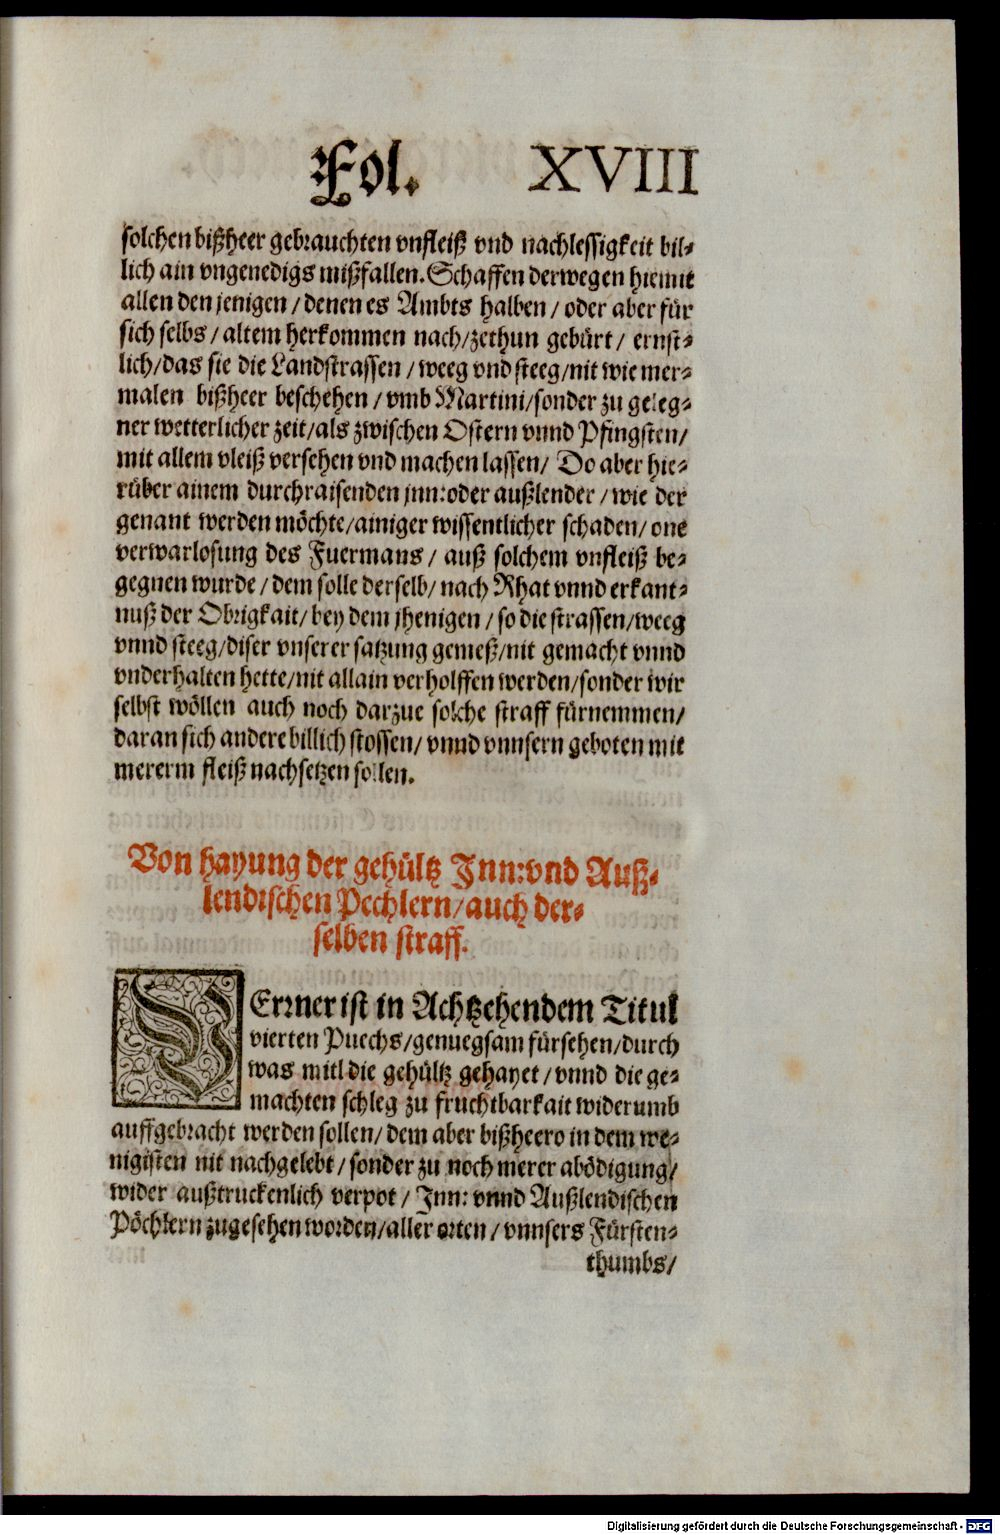 Fol. XVIII
solchen bißheer gebrauchten vnfleiß vnd nachlessigkeit bil-
lich ain vngenedigs mißfallen. Schaffen derwegen hiemit
allen den jenigen / denen es Ambts halben / oder aber für
sich selbs / altem herkommen nach / zethun gebürt / ernst-
lich / das sie die Landstrassen / weeg vnd steeg / nit wie mer-
malen bißheer beschehen / vmb Martini / sonder zu geleg-
ner wetterlicher zeit / als zwischen Ostern vnnd Pfingsten /
mit allem vleiß versehen vnd machen lassen / Do aber hie-
rüber ainem durchraisenden jnn: oder außlender / wie der
genant werden möchte / ainiger wissentlicher schaden / one
verwarlosung des Fuermans / auß solchem vnfleiß be-
gegnen wurde / dem solle derselb / nach Rhat vnnd erkant-
nuß der Obrigkait / bey dem jhenigen / so die strassen / weeg
vnnd steeg / diser vnserer satzung gemeß / nit gemacht vnnd
vnderhalten hette / nit allain verholffen werden / sonder wir
selbst wöllen auch noch darzue solche straff fürnemmen /
daran sich andere billich stossen / vnnd vnnsern geboten mit
mererm fleiß nachsetzen sollen.
Von hayung der gehültz Inn: vnd Auß-
lendischen Pechlern / auch der-
selben straff.
FErrner ist in Achtzehendem Titul
vierten Puechs / genuegsam fürsehen / durch
was mitl die gehültz gehayet / vnnd die ge-
machten schleg zu fruchtbarkait widerumb
auffgebracht werden sollen / dem aber bißheero in dem we-
nigisten nit nachgelebt / sonder zu noch merer abödigung /
wider außtruckenlich verpot / Inn: vnnd Außlendischen
Pöchlern zugesehen worden / aller orten / vnnsers Fürsten-
thumbs /
Digitalisierung gefördert durch die Deutsche Forschungsgemeinschaft - DFG